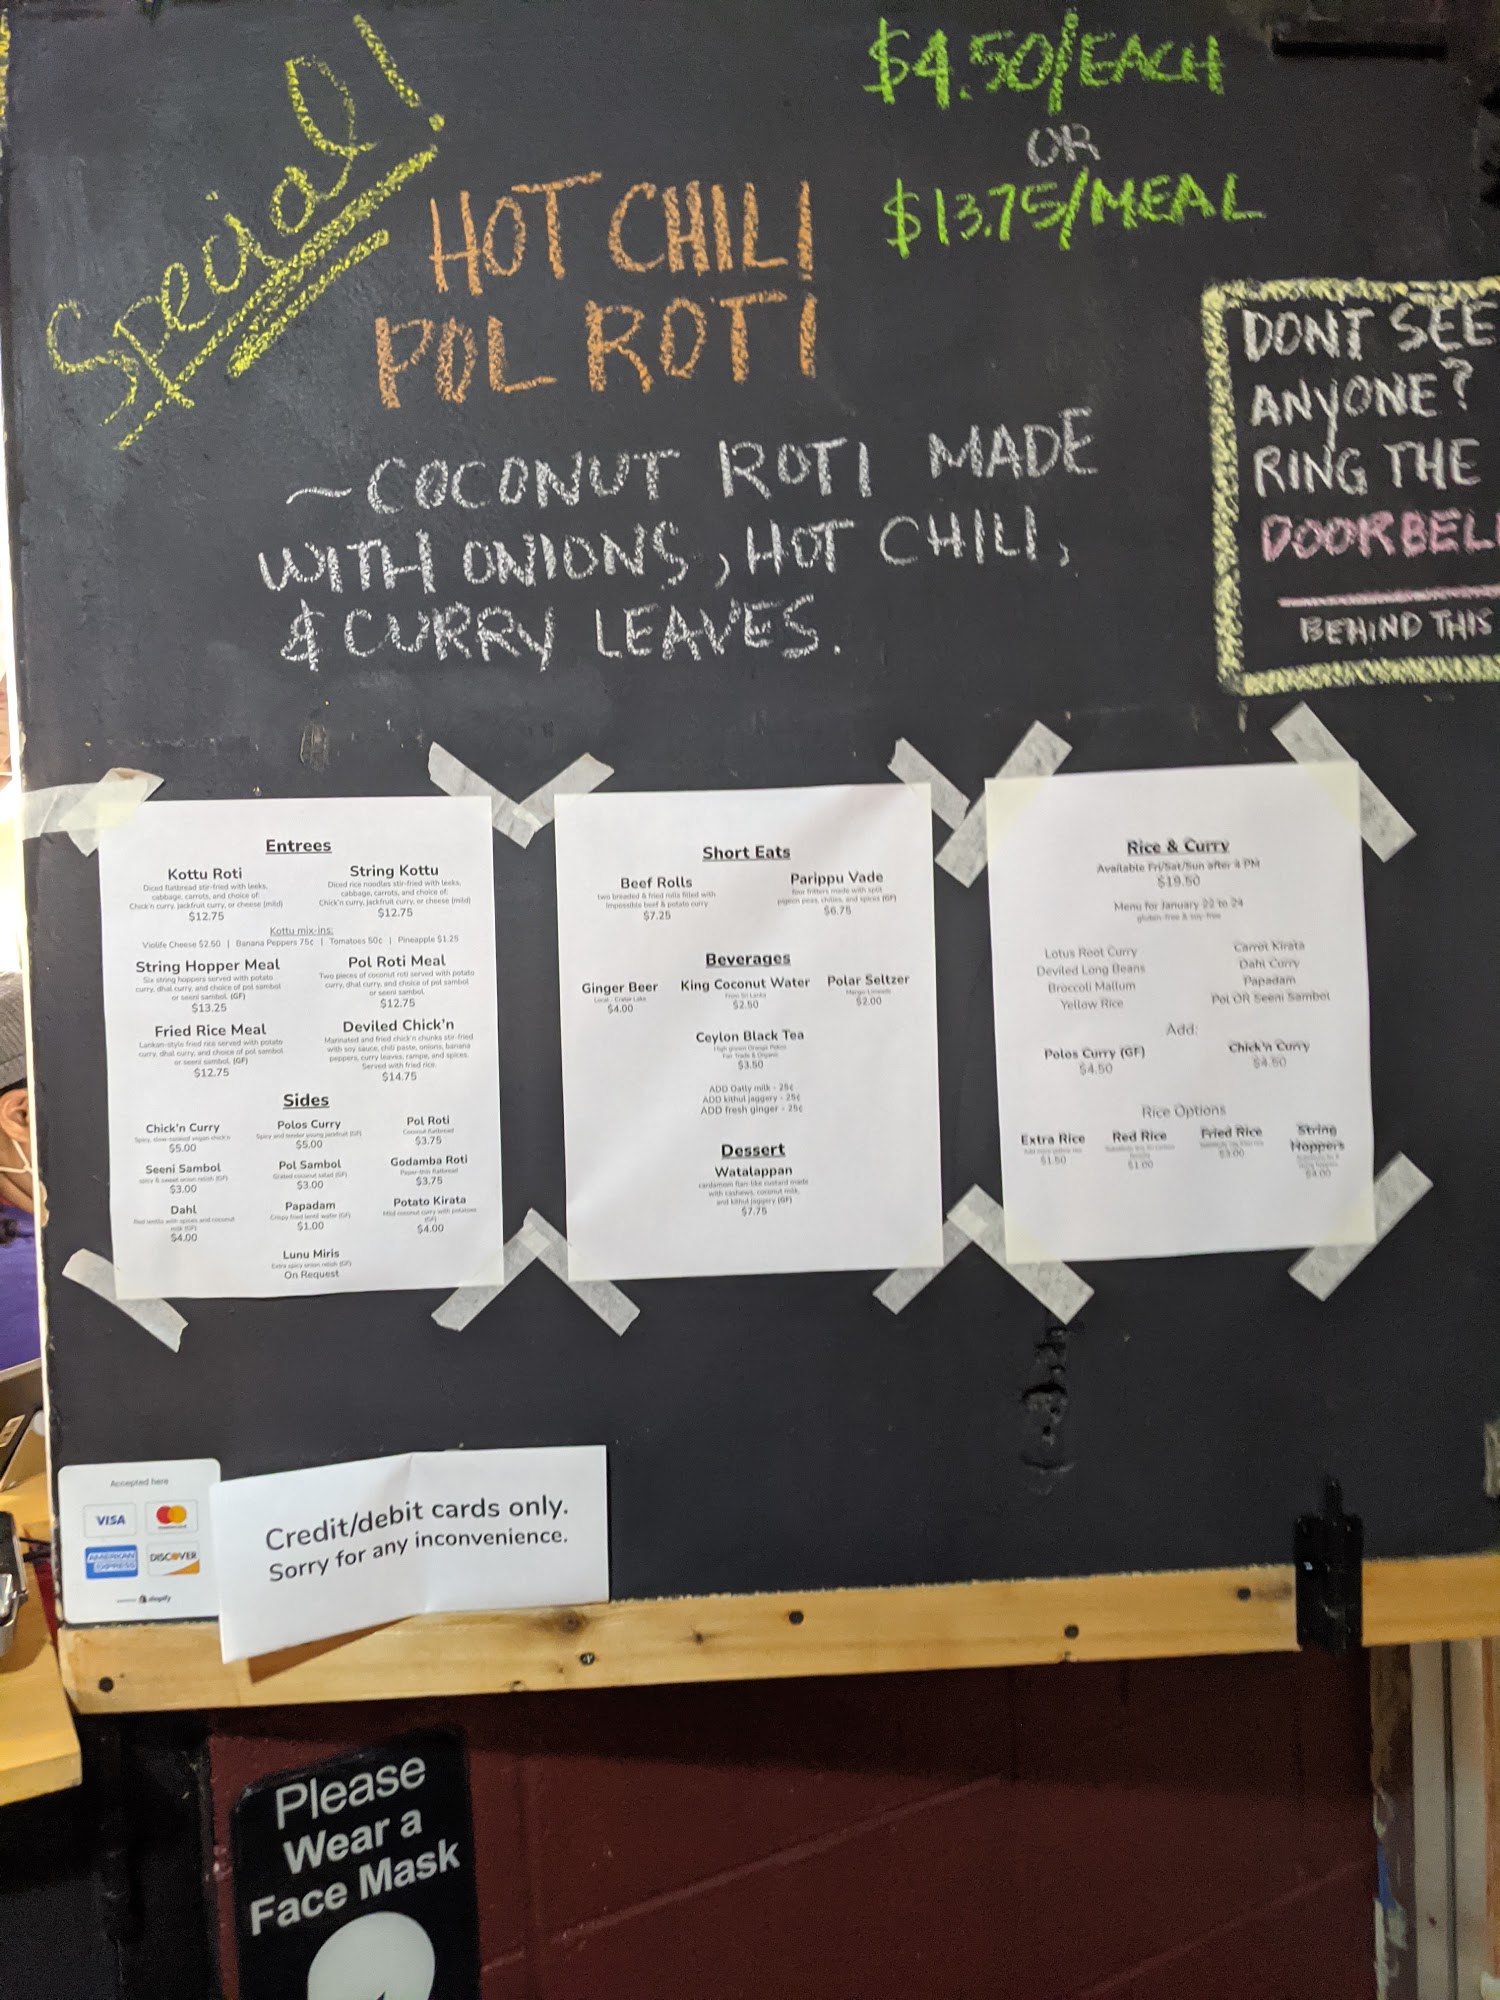 Special!
$4.50/EACH
OR
$13.75/MEAL
HOT CHILI
POL ROTI
~COCONUT ROTI MADE
WITH ONIONS, HOT CHILI,
& CURRY LEAVES.
DONT SEE
ANYONE?
RING THE
DOORBELL
BEHIND THIS
Entrees
Kottu Roti
Diced flatbread stir-fried with leeks,
cabbage, carrots, and choice of:
Chick'n curry, jackfruit curry, or cheese (mild)
$12.75
String Kottu
Diced rice noodles stir-fried with leeks,
cabbage, carrots, and choice of:
Chick'n curry, jackfruit curry, or cheese (mild)
$12.75
Kottu mix-ins:
Violife Cheese $2.50 | Banana Peppers 75¢ | Tomatoes 50¢ | Pineapple $1.25
String Hopper Meal
Six string hoppers served with potato
curry, dhal curry, and choice of pol sambol
or seeni sambol. (GF)
$13.25
Pol Roti Meal
Two pieces of coconut roti served with potato
curry, dhal curry, and choice of pol sambol
or seeni sambol.
$12.75
Fried Rice Meal
Lankan-style fried rice served with potato
curry, dhal curry, and choice of pol sambol
or seeni sambol. (GF)
$12.75
Deviled Chick'n
Marinated and fried chick'n chunks stir-fried
with soy sauce, chili paste, onions, banana
peppers, curry leaves, rampe, and spices.
Served with fried rice.
$14.75
Sides
Chick'n Curry
Spicy, slow-cooked vegan chick'n
$5.00
Polos Curry
Spicy and tender young jackfruit (GF)
$5.00
Pol Roti
Coconut flatbread
$3.75
Seeni Sambol
spicy & sweet onion relish (GF)
$3.00
Pol Sambol
Grated coconut salad (GF)
$3.00
Godamba Roti
Paper-thin flatbread
$3.75
Dahl
Red lentils with spices and coconut
milk (GF)
$4.00
Papadam
Crispy fried lentil wafer (GF)
$1.00
Potato Kirata
Mild coconut curry with potatoes
(GF)
$4.00
Lunu Miris
Extra spicy onion relish (GF)
On Request
Short Eats
Beef Rolls
two breaded & fried rolls filled with
Impossible beef & potato curry
$7.25
Parippu Vade
four fritters made with split
pigeon peas, chilies, and spices (GF)
$6.75
Beverages
Ginger Beer
Local - Crater Lake
$4.00
King Coconut Water
From Sri Lanka
$2.50
Polar Seltzer
$2.00
Ceylon Black Tea
High grown Orange Pekoe
Fair Trade & Organic
$3.50
ADD Oatly milk - 25¢
ADD kithul jaggery - 25¢
ADD fresh ginger - 25¢
Dessert
Watalappan
cardamom flan-like custard made
with cashews, coconut milk,
and kithul jaggery (GF)
$7.75
Rice & Curry
Available Fri/Sat/Sun after 4 PM
$19.50
Menu for January 22 to 24
gluten-free & soy-free
Lotus Root Curry
Deviled Long Beans
Broccoli Mallum
Yellow Rice
Carrot Kirata
Dahl Curry
Papadam
Pol OR Seeni Sambol
Add:
Polos Curry (GF)
$4.50
Chick'n Curry
$4.50
Rice Options
Extra Rice
$1.50
Red Rice
$1.00
Fried Rice
$3.00
String
Hoppers
$4.00
Accepted here
VISA
mastercard
AMERICAN
EXPRESS
DISCOVER
shopify
Credit/debit cards only.
Sorry for any inconvenience.
Please
Wear a
Face Mask